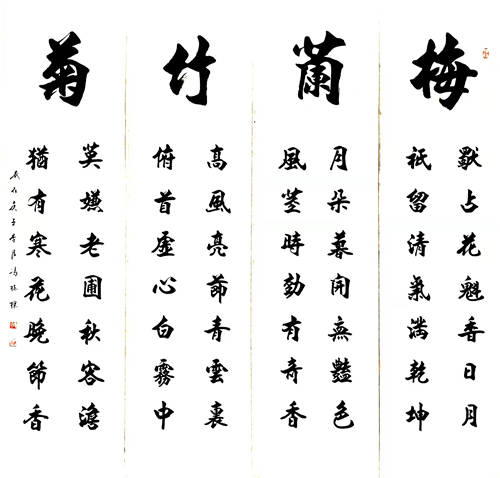 梅
占花魁香日月
祇留清氣滿乾坤
蘭
月朵暮開無艷色
風莖時動有奇香
竹
高風亮節青雲裏
俯首虛心白霧中
菊
莫嫌老圃秋容澹
猶有寒花晚節香